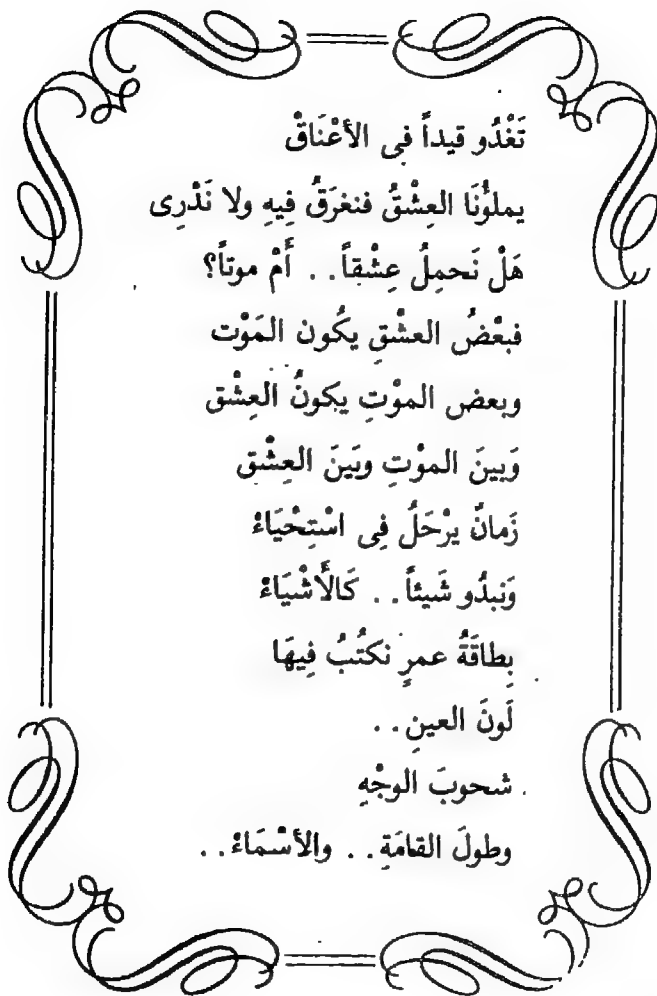 تَغْدُو قيداً فى الأعْنَاقْ
يملؤُنَا العِشْقُ فنغرَقُ فِيهِ ولا نَدْرِى
هَلْ نَحمِلُ عِشْقاً . . أَمْ موتاً؟
فبعْضُ العشْقِ يكُون المَوْت
وبعض الموْتِ يكونُ العِشْق
وَبينَ الموْتِ وبَينَ العِشْق
زَمانٌ يرْحَلُ فِى اسْتِحْيَاءْ
وَنبدُو شَيئاً . . كَالأَشْيَاءْ
بِطاقَةُ عمرٍ نكتُبُ فِيهَا
لَونَ العينِ . .
شحوبَ الوجْهِ
وطولَ القامَةِ . . والأسْمَاءْ . .